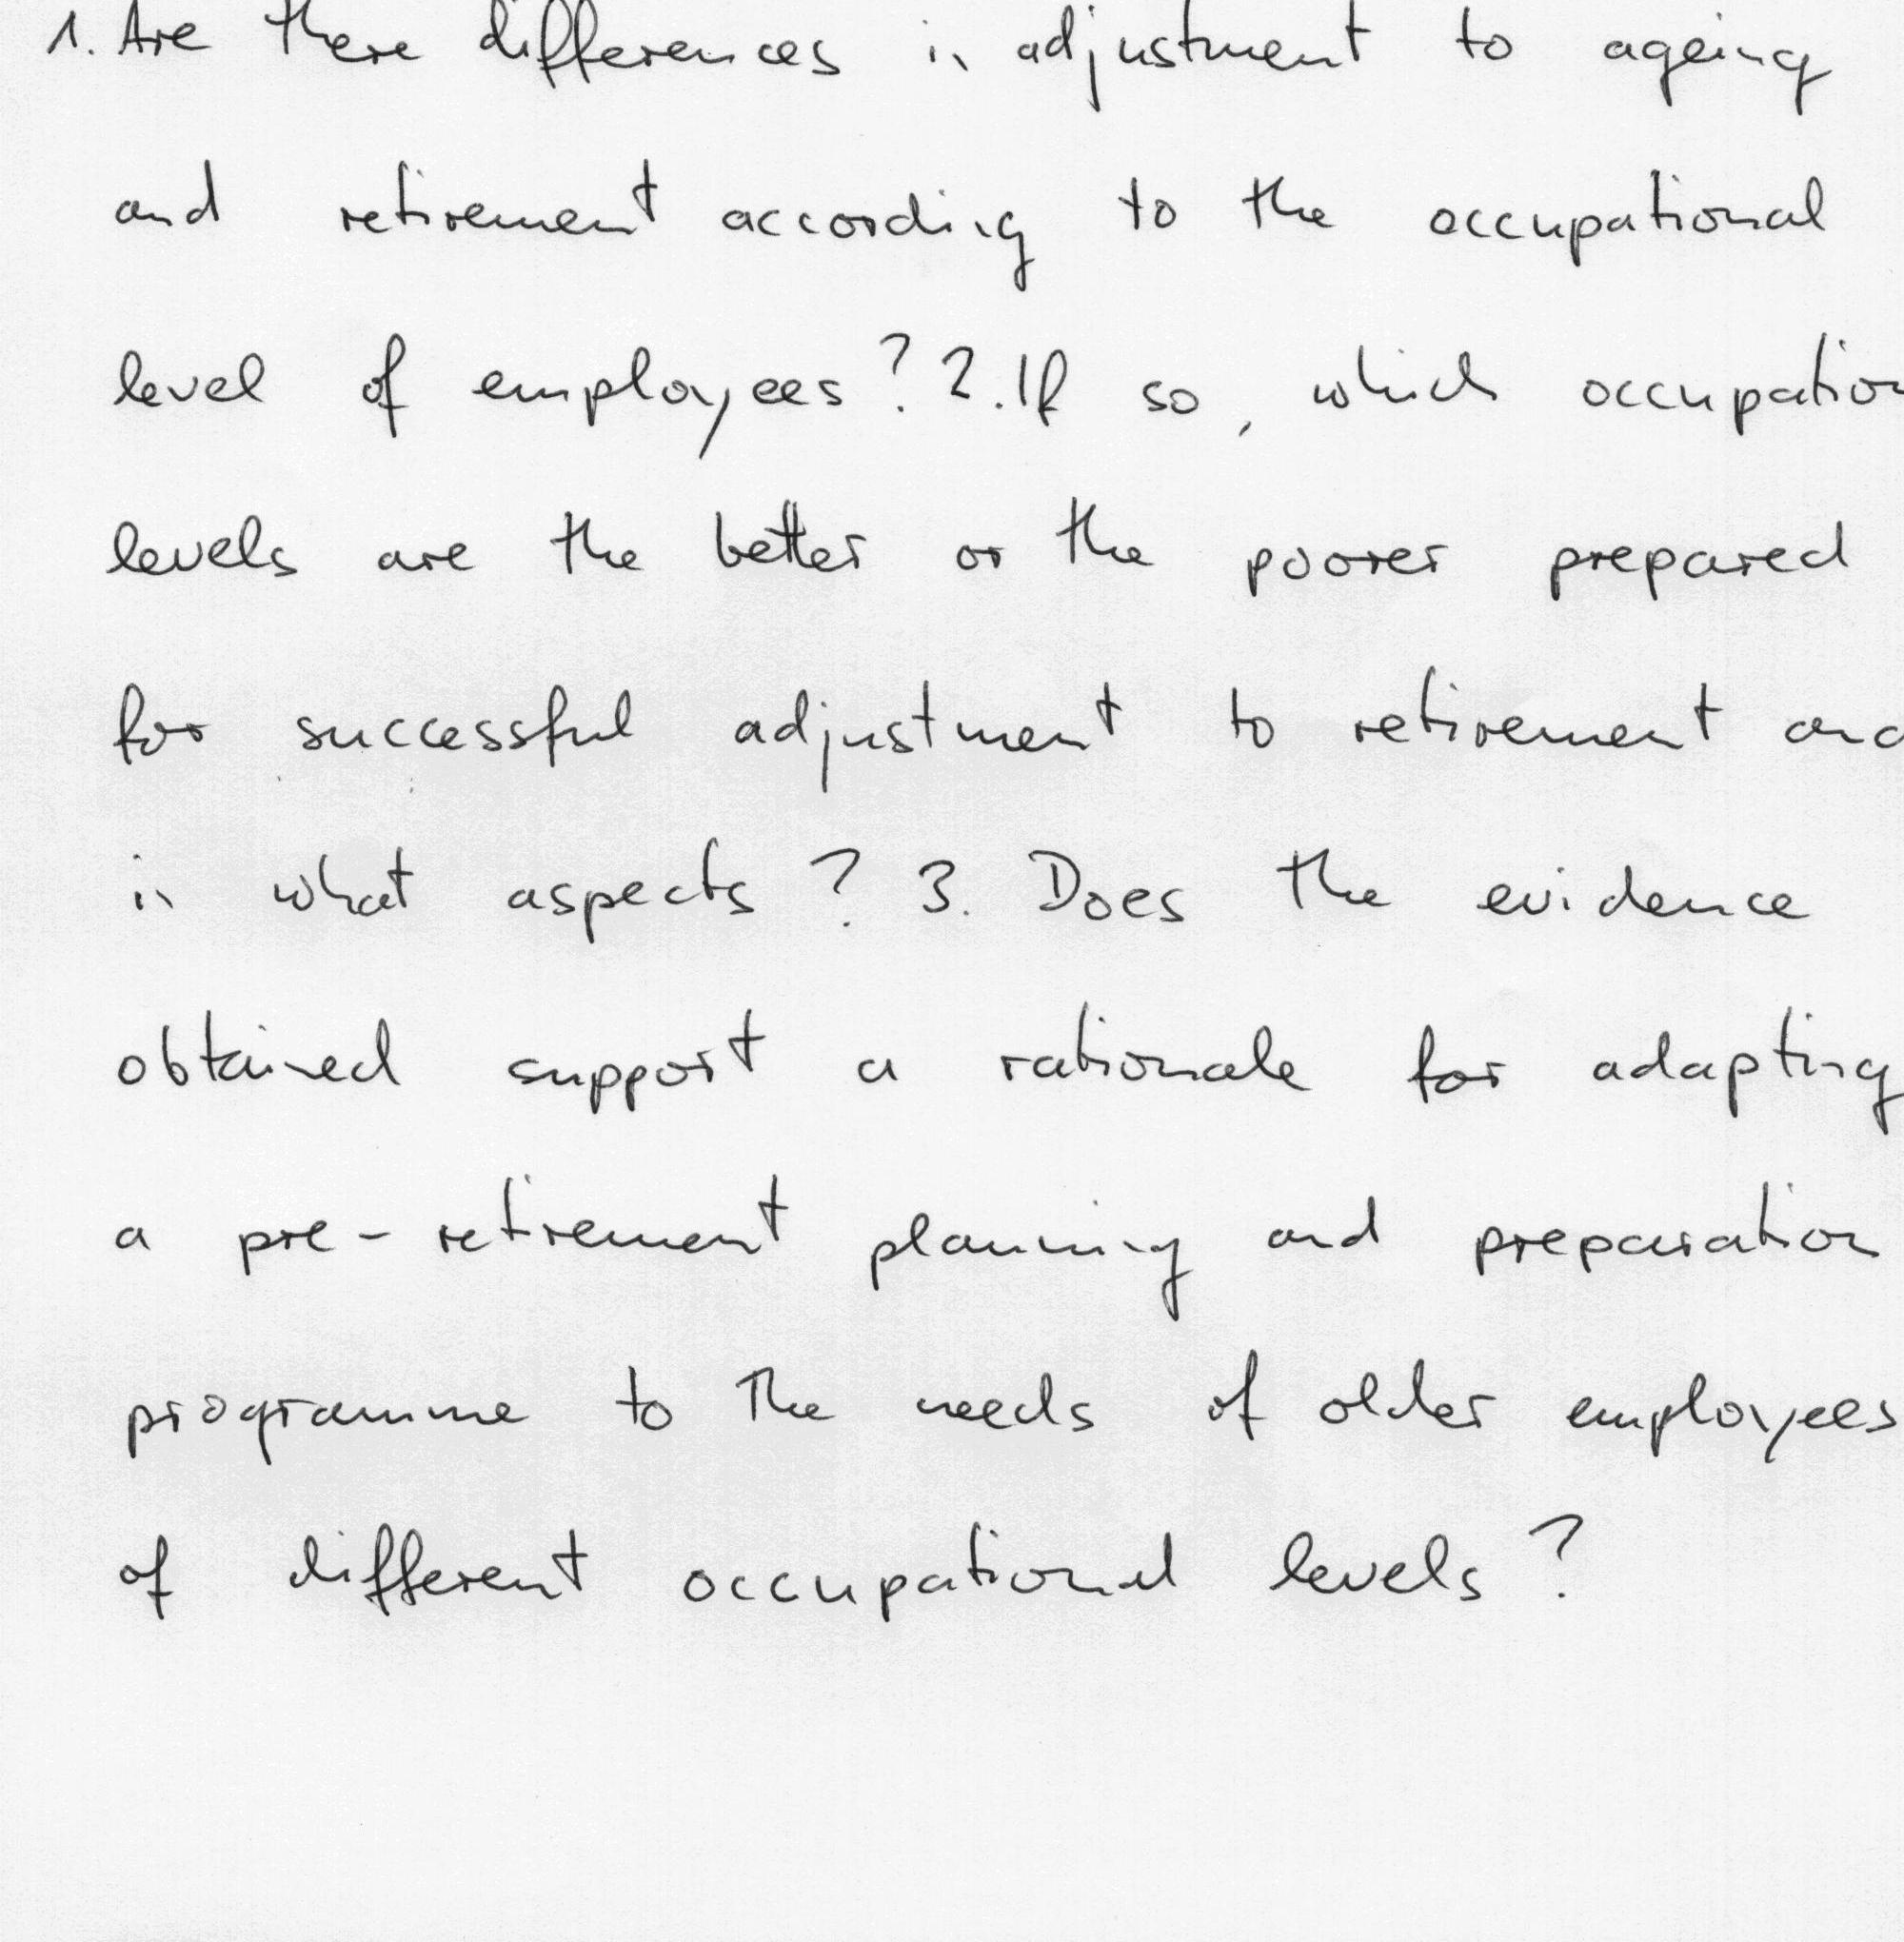 1. Are there differences in adjustment to ageing
and retirement according to the occupational
level of employees? 2. If so, which occupation
levels are the better or the poorer prepared
for successful adjustment to retirement and
in what aspects? 3. Does the evidence
obtained support a rationale for adapting
a pre-retirement planning and preparation
programme to the needs of older employees
of different occupational levels?